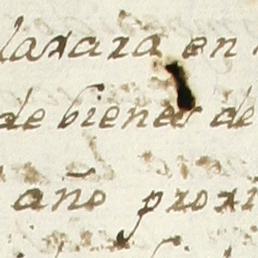 laxara en
de bienes de
año proxi